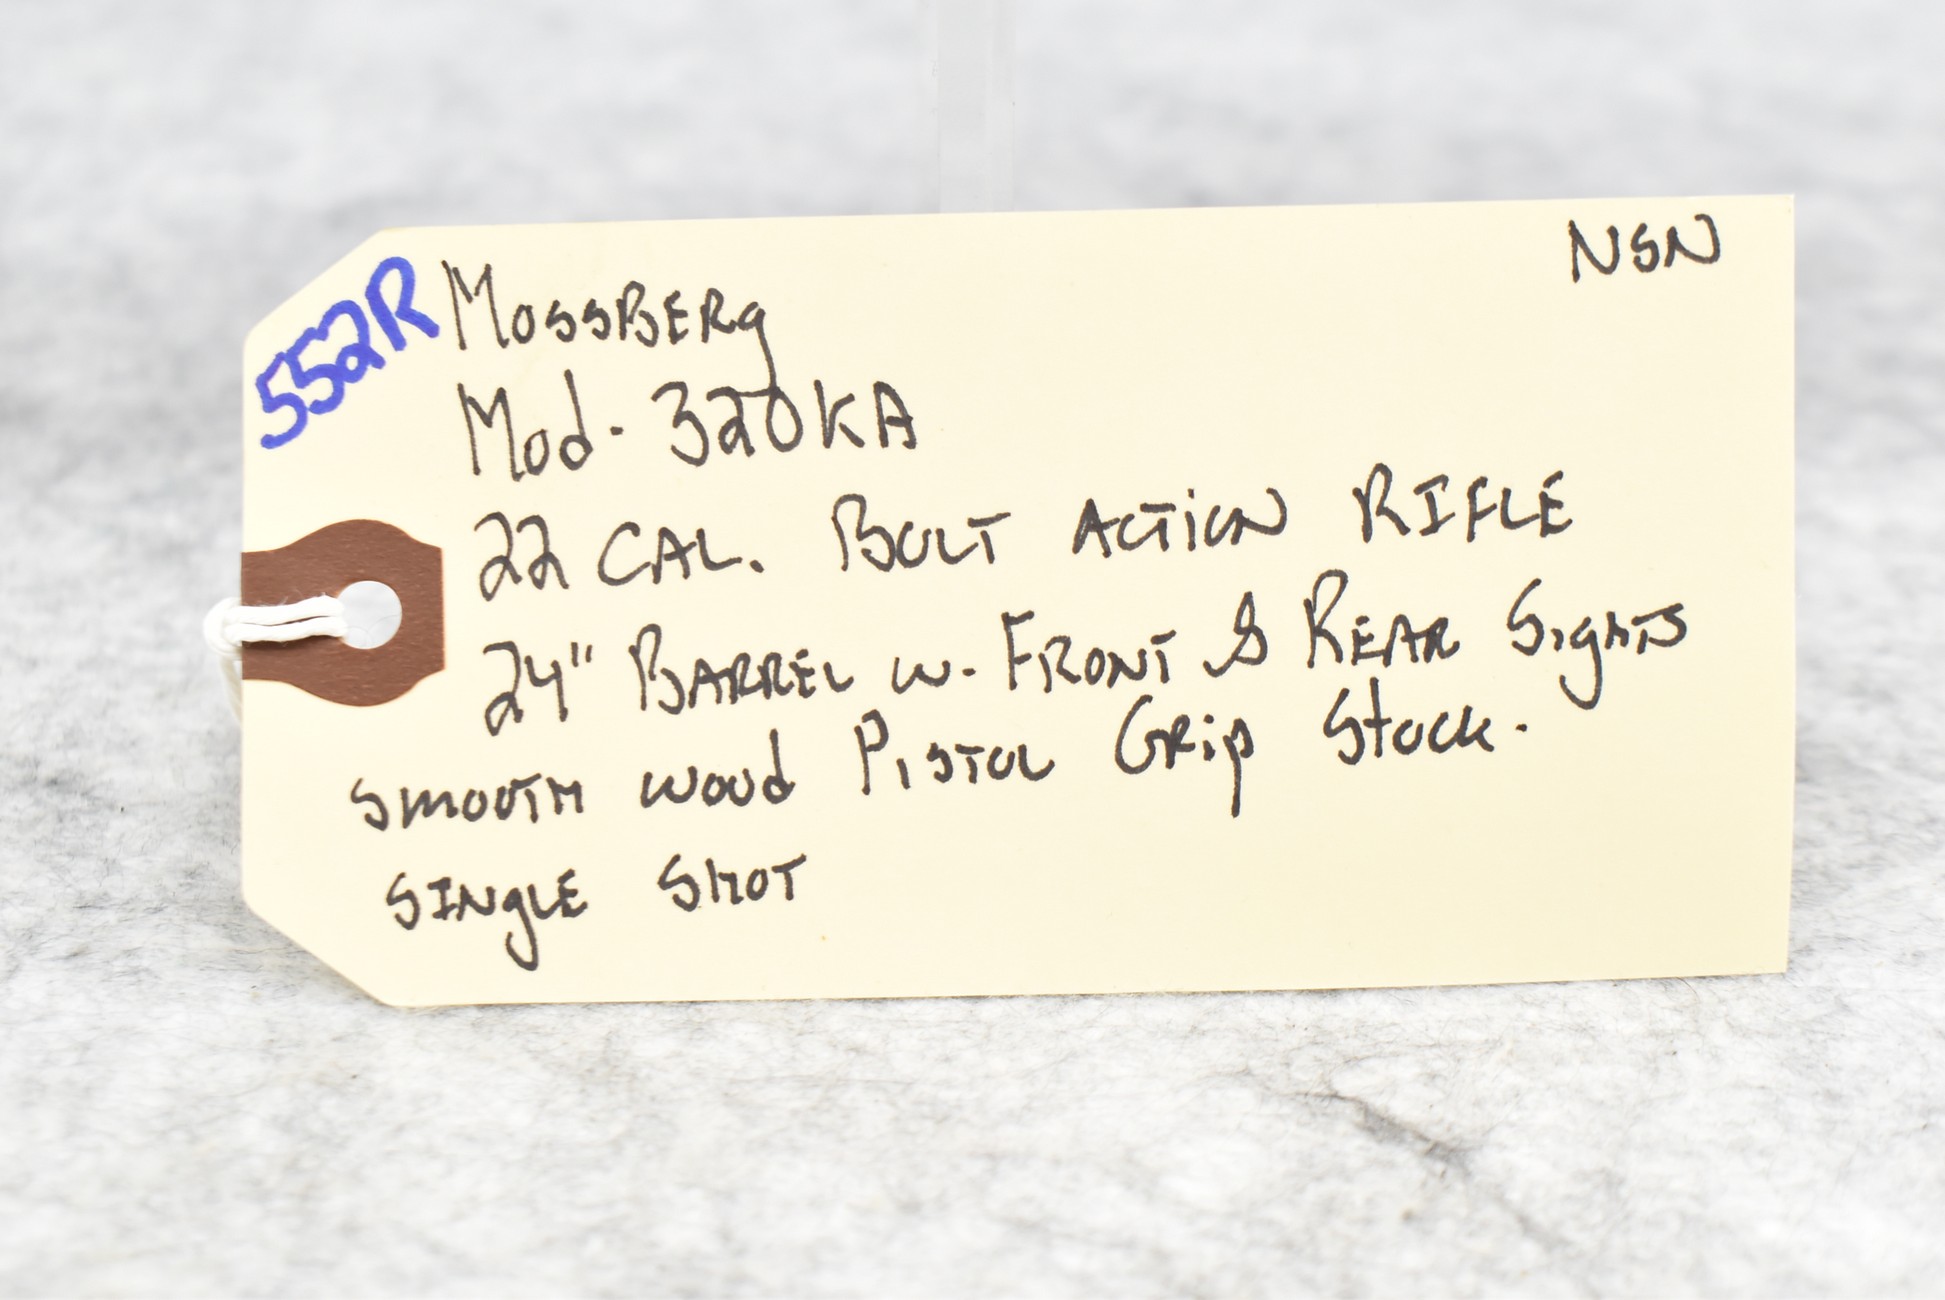 NSN
552R
MossBERg
Mod. 320KA
22 CAL. BOLT ACTION RIFLE
24" BARREL w. FRONT & REAR SighTS
SMOOTH wood PISTOL GRip Stock.
SINgLE SHOT